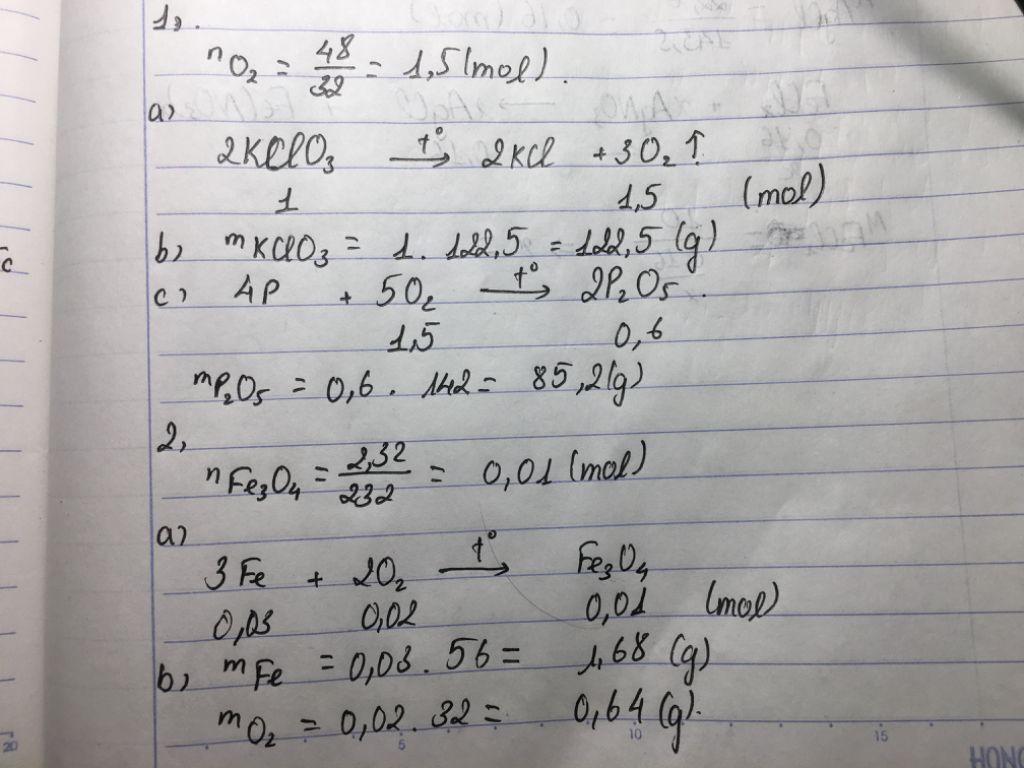 1,.
nO₂ = 48/32 = 1,5 (mol).
a,
2KClO₃ —t°→ 2KCl + 3O₂ ↑
1 1,5 (mol)
b, mKClO₃ = 1. 122,5 = 122,5 (g)
c, 4P + 5O₂ —t°→ 2P₂O₅.
1,5 0,6
mP₂O₅ = 0,6. 142 = 85,2 (g)
2,
nFe₃O₄ = 2,32/232 = 0,01 (mol)
a,
3Fe + 2O₂ —t°→ Fe₃O₄
0,03 0,02 0,01 (mol)
b, mFe = 0,03. 56 = 1,68 (g)
mO₂ = 0,02. 32 = 0,64 (g).
5 10 15
20